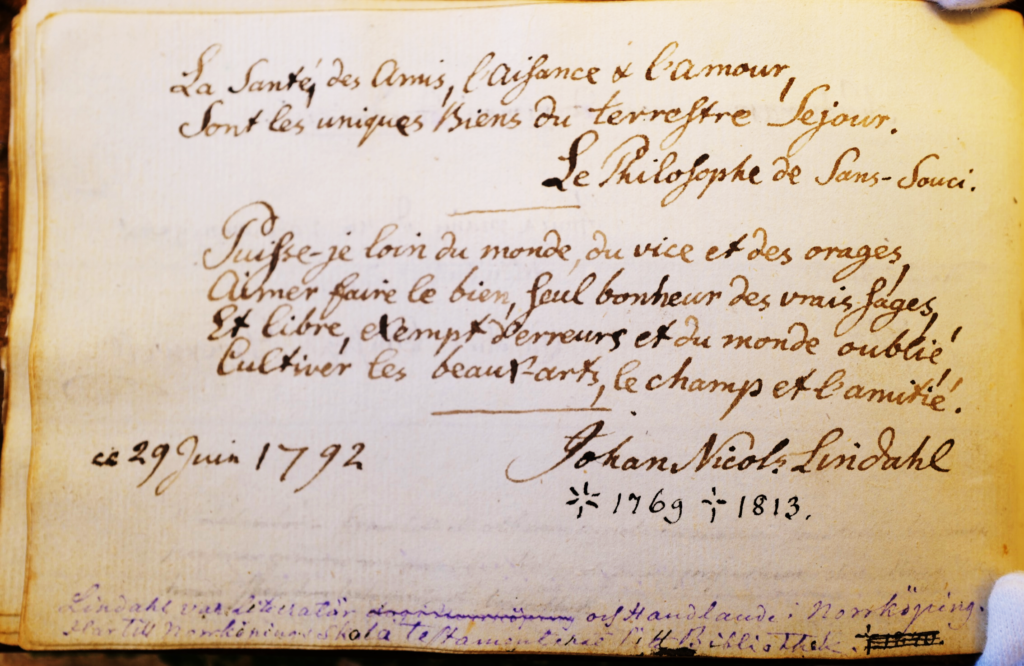 La Santé, des Amis, l'Aisance & l'amour,
Sont les uniques Biens du terrestre Sejour.
Le Philosophe de Sans-Souci.
Puisse-je loin du monde, du vice et des orages,
Aimer faire le bien, seul bonheur des vrais sages,
Et libre, exempt d'erreurs et du monde oublié
Cultiver les beaux-arts, le champ et l'amitié.
ce 29 Juin 1792
Johan Nicol. Lindahl
1769 1813.
Lindahl var Litteratör och Handlande i Norrköping.
Har till Norrköpings Skola testamenterat sitt Bibliothek.